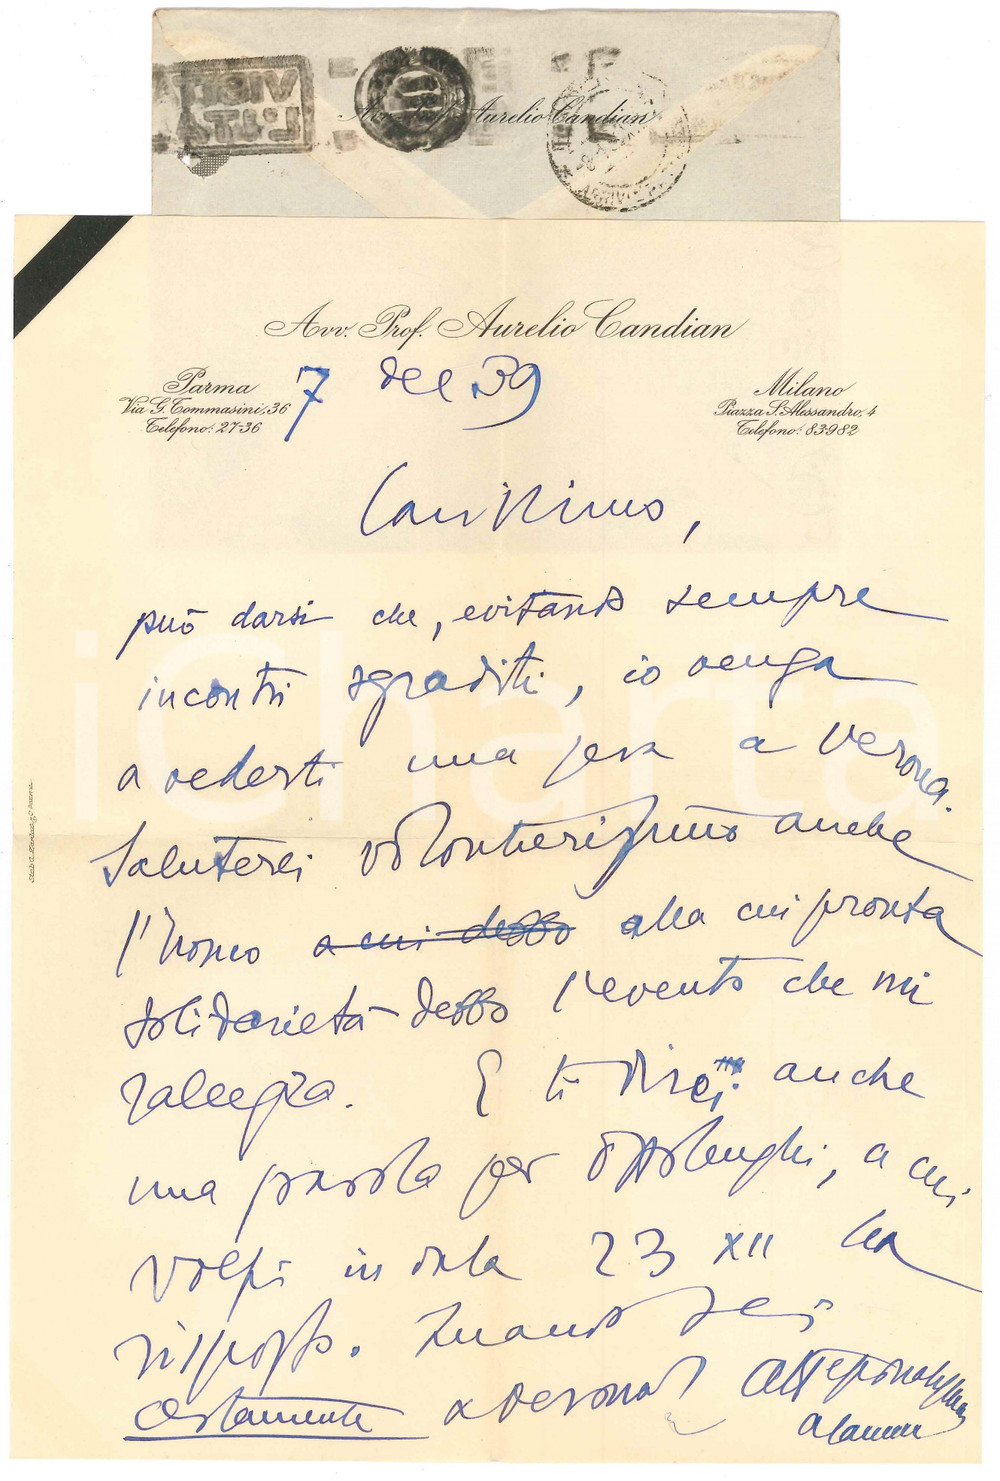 Avv. Prof. Aurelio Candian
Avv. Prof. Aurelio Candian
Parma
Via G. Tommasini, 36
Telefono: 27-36
Milano
Piazza S. Alessandro, 4
Telefono: 83982
7 dec 39
Carissimo,
può darsi che, evitando sempre
incontri sgraditi, io venga
a vederti una sera a Verona.
Saluterei volontierissimo anche
l'uomo a cui debbo alla cui pronta
solidarietà debbo l'evento che mi
rallegra. E ti direi anche
una parola per Ottolenghi, a cui
Volpi in data 23 XII ha
risposto. Quando sei
certamente a Verona?
iCharta